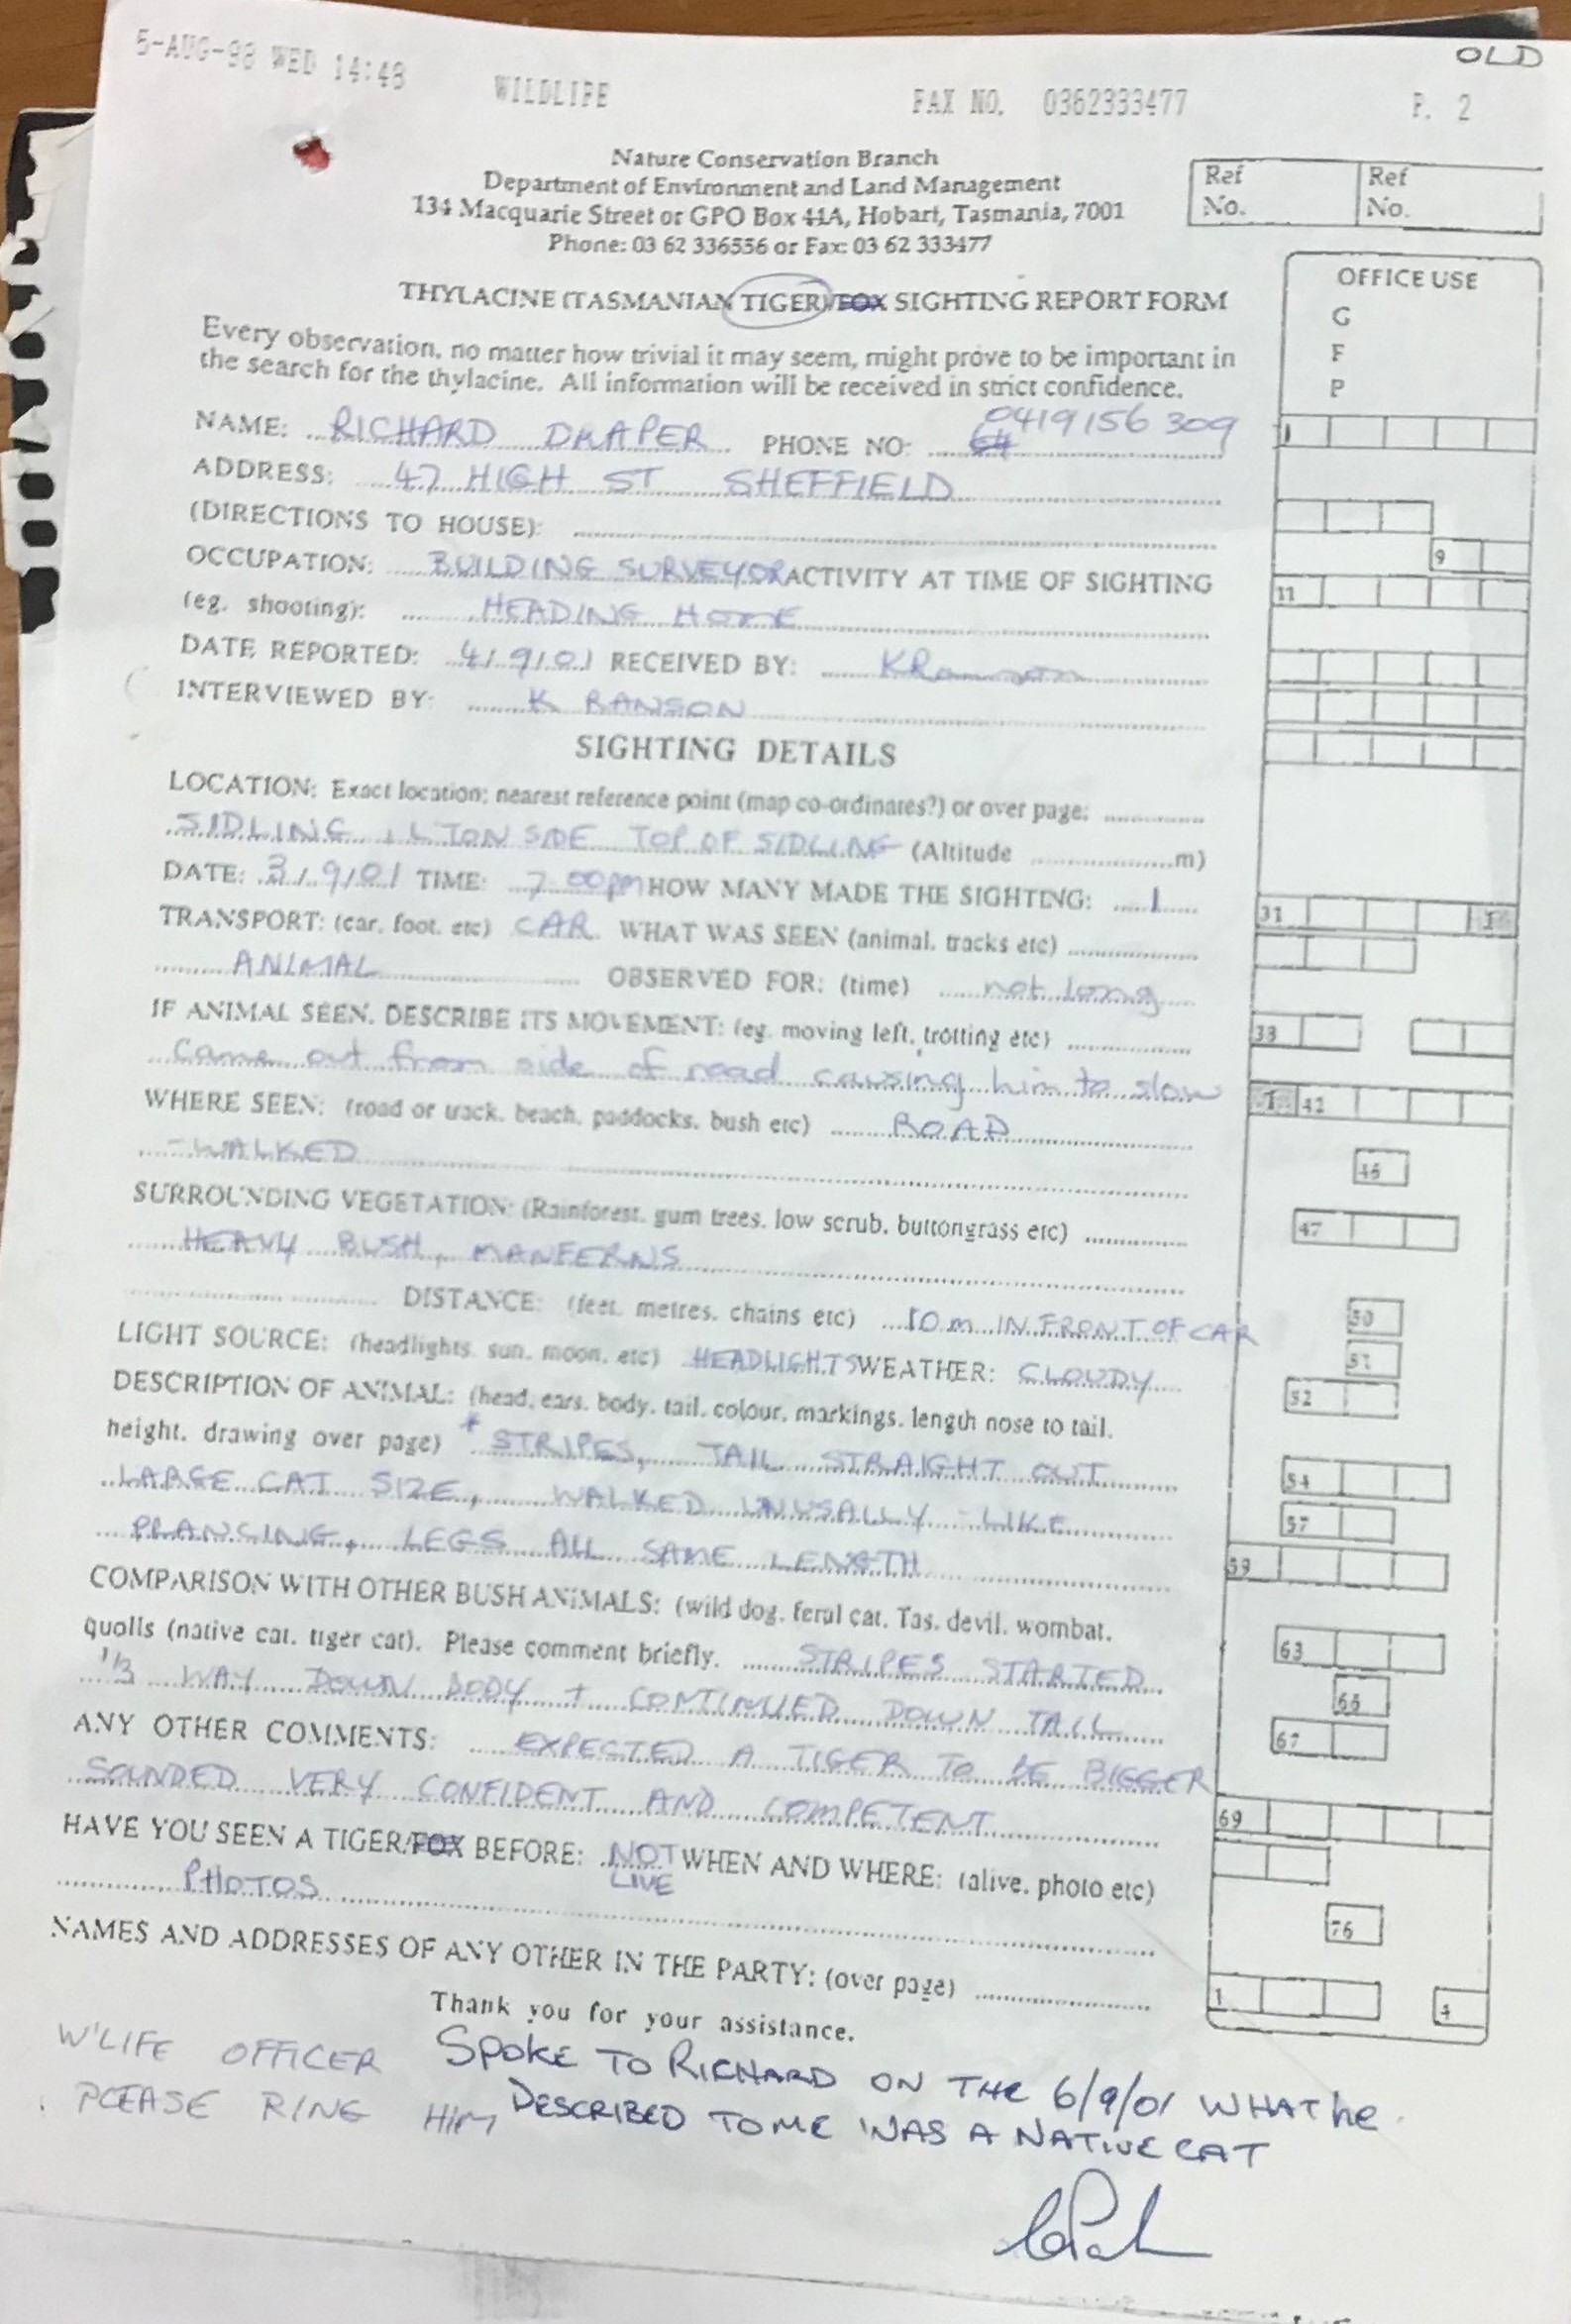 OLD
5-AUG-98 WED 14:48 WILDLIFE FAX NO. 0362333477 P. 2
Nature Conservation Branch
Department of Environment and Land Management
134 Macquarie Street or GPO Box 44A, Hobart, Tasmania, 7001
Phone: 03 62 336556 or Fax: 03 62 333477
Ref No. Ref No.
THYLACINE (TASMANIAN TIGER)/FOX SIGHTING REPORT FORM
Every observation, no matter how trivial it may seem, might prove to be important in
the search for the thylacine. All information will be received in strict confidence.
OFFICE USE
G
F
P
NAME: RICHARD DRAPER PHONE NO: 0419156 309
1
ADDRESS: 47 HIGH ST SHEFFIELD
(DIRECTIONS TO HOUSE):
9
OCCUPATION: BUILDING SURVEYOR ACTIVITY AT TIME OF SIGHTING
11
(eg. shooting): HEADING HOME
DATE REPORTED: 4/9/01 RECEIVED BY: KRanson
INTERVIEWED BY: K RANSON
SIGHTING DETAILS
LOCATION: Exact location; nearest reference point (map co-ordinates?) or over page:
SIDLING, L'TON SIDE TOP OF SIDLING (Altitude m)
DATE: 3/9/01 TIME: 7 00pm HOW MANY MADE THE SIGHTING: 1
31
TRANSPORT: (car, foot, etc) CAR WHAT WAS SEEN (animal, tracks etc)
ANIMAL OBSERVED FOR: (time) not long
IF ANIMAL SEEN, DESCRIBE ITS MOVEMENT: (eg. moving left, trotting etc)
38
came out from side of road causing him to slow
WHERE SEEN: (road or track, beach, paddocks, bush etc) ROAD
42
- WALKED
46
SURROUNDING VEGETATION: (Rainforest, gum trees, low scrub, buttongrass etc)
47
HEAVY BUSH, MANFERNS
DISTANCE: (feet, metres, chains etc) 10 m IN FRONT OF CAR
50
LIGHT SOURCE: (headlights, sun, moon, etc) HEADLIGHTS WEATHER: CLOUDY
51
DESCRIPTION OF ANIMAL: (head, ears, body, tail, colour, markings, length nose to tail,
52
height, drawing over page) * STRIPES, TAIL STRAIGHT OUT
54
LARGE CAT SIZE, WALKED UNUSALLY - LIKE
57
PRANCING, LEGS ALL SAME LENGTH
59
COMPARISON WITH OTHER BUSH ANIMALS: (wild dog, feral cat, Tas. devil, wombat,
quolls (native cat, tiger cat). Please comment briefly. STRIPES STARTED
63
1/3 WAY DOWN BODY + CONTINUED DOWN TAIL
66
ANY OTHER COMMENTS: EXPECTED A TIGER TO BE BIGGER
67
SOUNDED VERY CONFIDENT AND COMPETENT
69
HAVE YOU SEEN A TIGER/FOX BEFORE: NOT LIVE WHEN AND WHERE: (alive, photo etc)
PHOTOS
76
NAMES AND ADDRESSES OF ANY OTHER IN THE PARTY: (over page)
1 4
Thank you for your assistance.
W'LIFE OFFICER
PLEASE RING HIM
SPOKE TO RICHARD ON THE 6/9/01 WHAT he
DESCRIBED TO ME WAS A NATIVE CAT